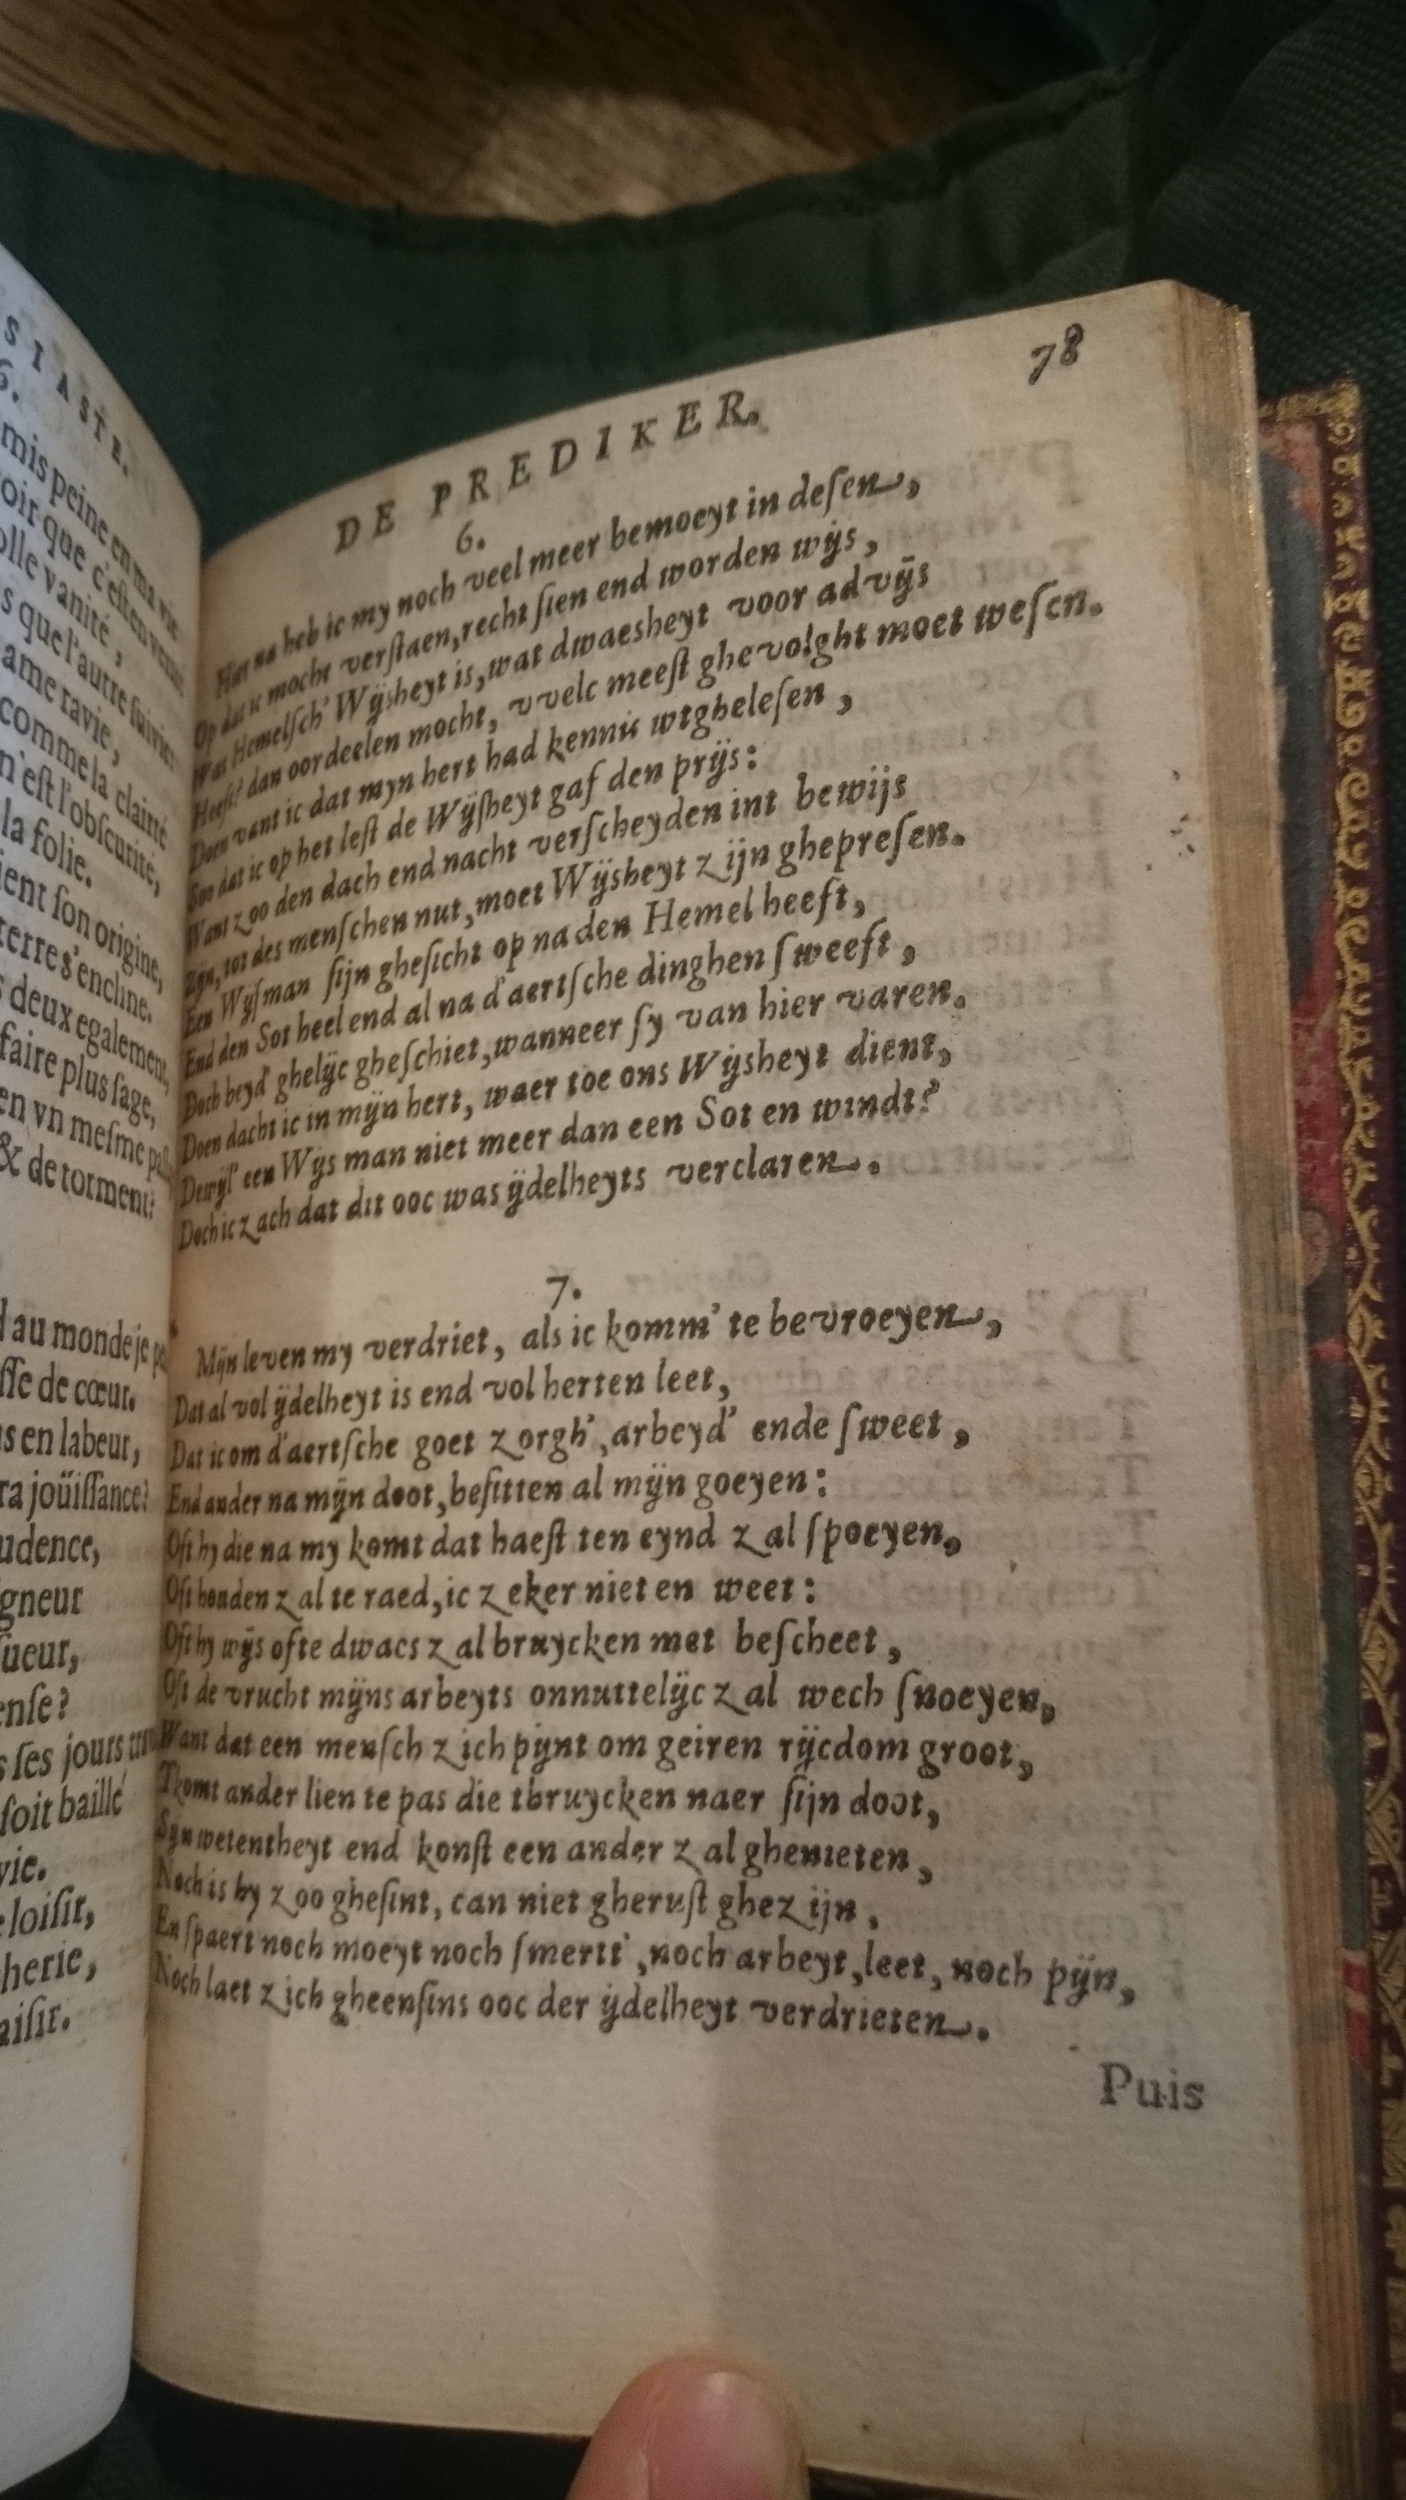 SIASTE.
6.
mis peine en ma vie
oir que c'est en
olle vanité,
s que l'autre suivie:
ame ravie,
comme la clairté
n'est l'obscurité,
la folie.
ient son origine,
terre s'encline.
s deux egalement,
faire plus sage,
en vn mesme
& de torment?
au monde je
sse de cœur.
us en labeur,
ra jouïssance?
udence,
gneur
ueur,
ense?
s ses jours
soit baillé
vie.
loisir,
herie,
aisir.
78
DE PREDIKER.
6.
Hier na heb ic my noch veel meer bemoeyt in desen,
Op dat ic mocht verstaen, recht sien end worden wijs,
Wat Hemelsch' Wijsheyt is, wat dwaesheyt voor advijs
Heeft? dan oordeelen mocht, vvelc meest ghevolght moet wesen.
Doen vant ic dat myn hert had kennis wtghelesen,
Soo dat ic op het lest de Wijsheyt gaf den prijs:
Want zoo den dach end nacht verscheyden int bewijs
Zijn, tot des menschen nut, moet Wijsheyt zijn ghepresen.
Een Wijsman sijn ghesicht op na den Hemel heeft,
End den Sot heel end al na d'aertsche dinghen sweeft,
Doch beyd' ghelijc gheschiet, wanneer sy van hier varen.
Doen dacht ic in mijn hert, waer toe ons Wijsheyt dient,
Dewijl' een Wijs man niet meer dan een Sot en windt?
Doch ic zach dat dit ooc was ijdelheyts verclaren.
7.
Mijn leven my verdriet, als ic komm' te bevroeyen,
Dat al vol ijdelheyt is end vol herten leet,
Dat ic om d'aertsche goet zorgh', arbeyd' ende sweet,
End ander na mijn doot, besitten al mijn goeyen:
Oft hy die na my komt dat haest ten eynd zal spoeyen,
Oft houden zal te raed, ic zeker niet en weet:
Oft hy wijs ofte dwaes zal bruycken met bescheet,
Oft de vrucht mijns arbeyts onnuttelijc zal wech snoeyen,
Want dat een mensch zich pijnt om geiren rijcdom groot,
Tkomt ander lien te pas die tbruycken naer sijn doot,
Sijn wetentheyt end konst een ander zal ghenieten,
Noch is hy zoo ghesint, can niet gherust ghezijn,
En spaert noch moeyt noch smertt', noch arbeyt, leet, noch pijn,
Noch laet zich gheensins ooc der ijdelheyt verdrieten.
Puis